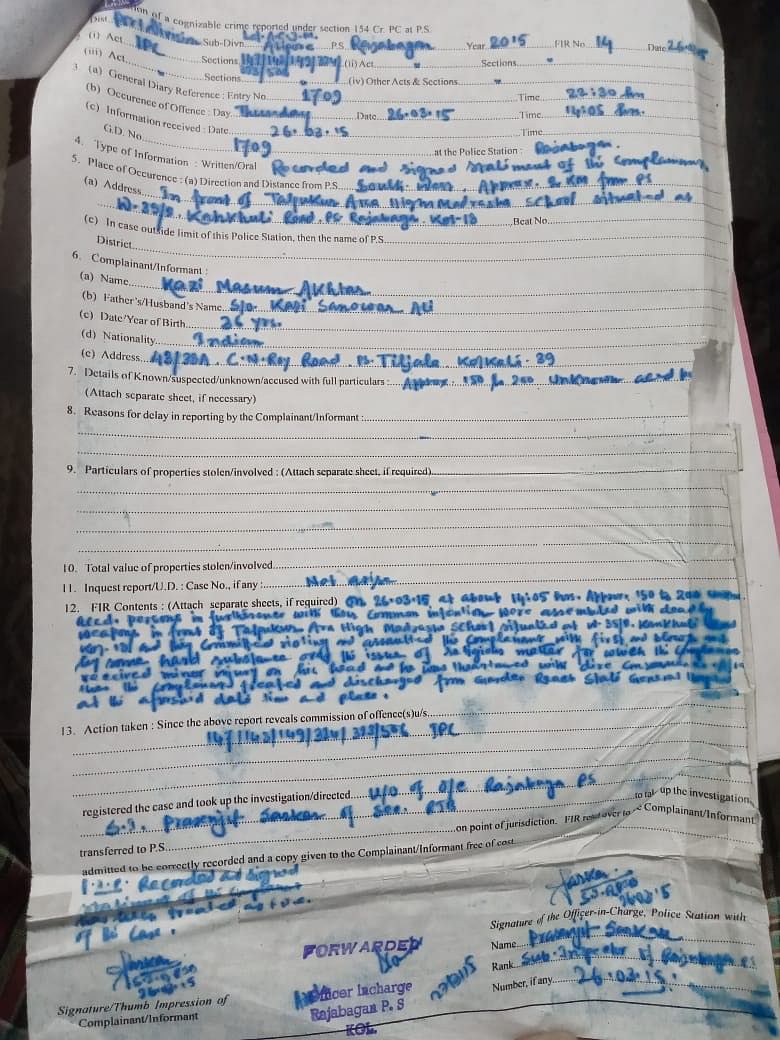 ion of a cognizable crime reported under section 154 Cr. PC at P.S.
Dist. Port Division Sub-Divn. Ld. A.C.J.M. Alipore P.S. Rajabagan Year 2015 FIR No. 14 Date 26.03.15
(i) Act IPC Sections 147/148/149/324/ (ii) Act Sections
(iii) Act Sections (iv) Other Acts & Sections
3. (a) General Diary Reference : Entry No. 1709 Time 22:30 hrs
(b) Occurence of Offence : Day Thursday Date 26.03.15 Time 14:05 hrs.
(c) Information received : Date 26.03.15 Time
G.D. No. 1709 at the Police Station : Rajabagan.
4. Type of Information : Written/Oral Recorded and signed statiment of the complainant,
5. Place of Occurence : (a) Direction and Distance from P.S. South-West, Approx. 2 KM from PS
(a) Address In front of Talpukur Ara High Madrasha School situated at
Road. PS Rajabaga. Kol-18 Beat No.
(c) In case outside limit of this Police Station, then the name of P.S.
District
6. Complainant/Informant :
(a) Name Kazi Masum Akhtar
(b) Father's/Husband's Name S/o- Kazi Sanowar Ali
(c) Date/Year of Birth yrs.
(d) Nationality Indian
(e) Address 48/20A, C.N. Roy Road, PS. Tiljala Kolkata-39
7. Details of Known/suspected/unknown/accused with full particulars : Approx. 150 to 200 unknown
(Attach separate sheet, if necessary)
8. Reasons for delay in reporting by the Complainant/Informant :
9. Particulars of properties stolen/involved : (Attach separate sheet, if required)
10. Total value of properties stolen/involved
11. Inquest report/U.D. : Case No., if any : Not arise
12. FIR Contents : (Attach separate sheets, if required) On 26.03.15 at about 14:05 hrs. Approx. 150 to 200
accd. persons in furtherance with their common intention were assembled with deadly
weapons in front of Talpukur Ara High Madrasha School situated at
Kol-18 and they committed rioting and assaulted the complainant with fist and blows and
by some hard substance over the issue of religious matter for which the
received minor injury on his head and he was threatened with dire
the complainant treated and discharged from Garden Reach State General
at the aforesaid date time and place.
13. Action taken : Since the above report reveals commission of offence(s)u/s.
IPC
registered the case and took up the investigation/directed u/o of o/c Rajabaga PS
S.I. Prasenjit Sarkar of to take up the investigation
transferred to P.S. on point of jurisdiction. FIR read over to Complainant/Informant
admitted to be correctly recorded and a copy given to the Complainant/Informant free of cost
Recorded and signed
statiment of the complainant
has been treated as
of the case.
26.03.15
Signature/Thumb Impression of
Complainant/Informant
FORWARDED
Officer Incharge
Rajabagan P. S
KOL.
27/3/15
Signature of the Officer-in-Charge, Police Station with
Name Prasenjit Sarkar
Rank Sub-Inspector of Rajabaga P.S.
Number, if any 26.03.15.